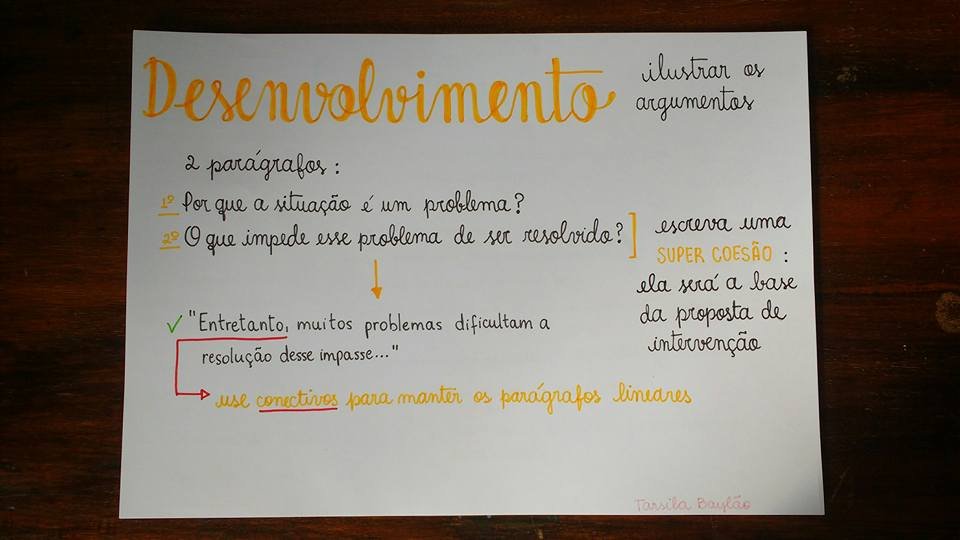 Desenvolvimento
ilustrar os
argumentos
2 parágrafos:
1º Por que a situação é um problema?
2º O que impede esse problema de ser resolvido?
escreva uma
SUPER COESÃO:
ela será a base
da proposta de
intervenção
"Entretanto, muitos problemas dificultam a
resolução desse impasse..."
use conectivos para manter os parágrafos lineares
Tarsila Baylão